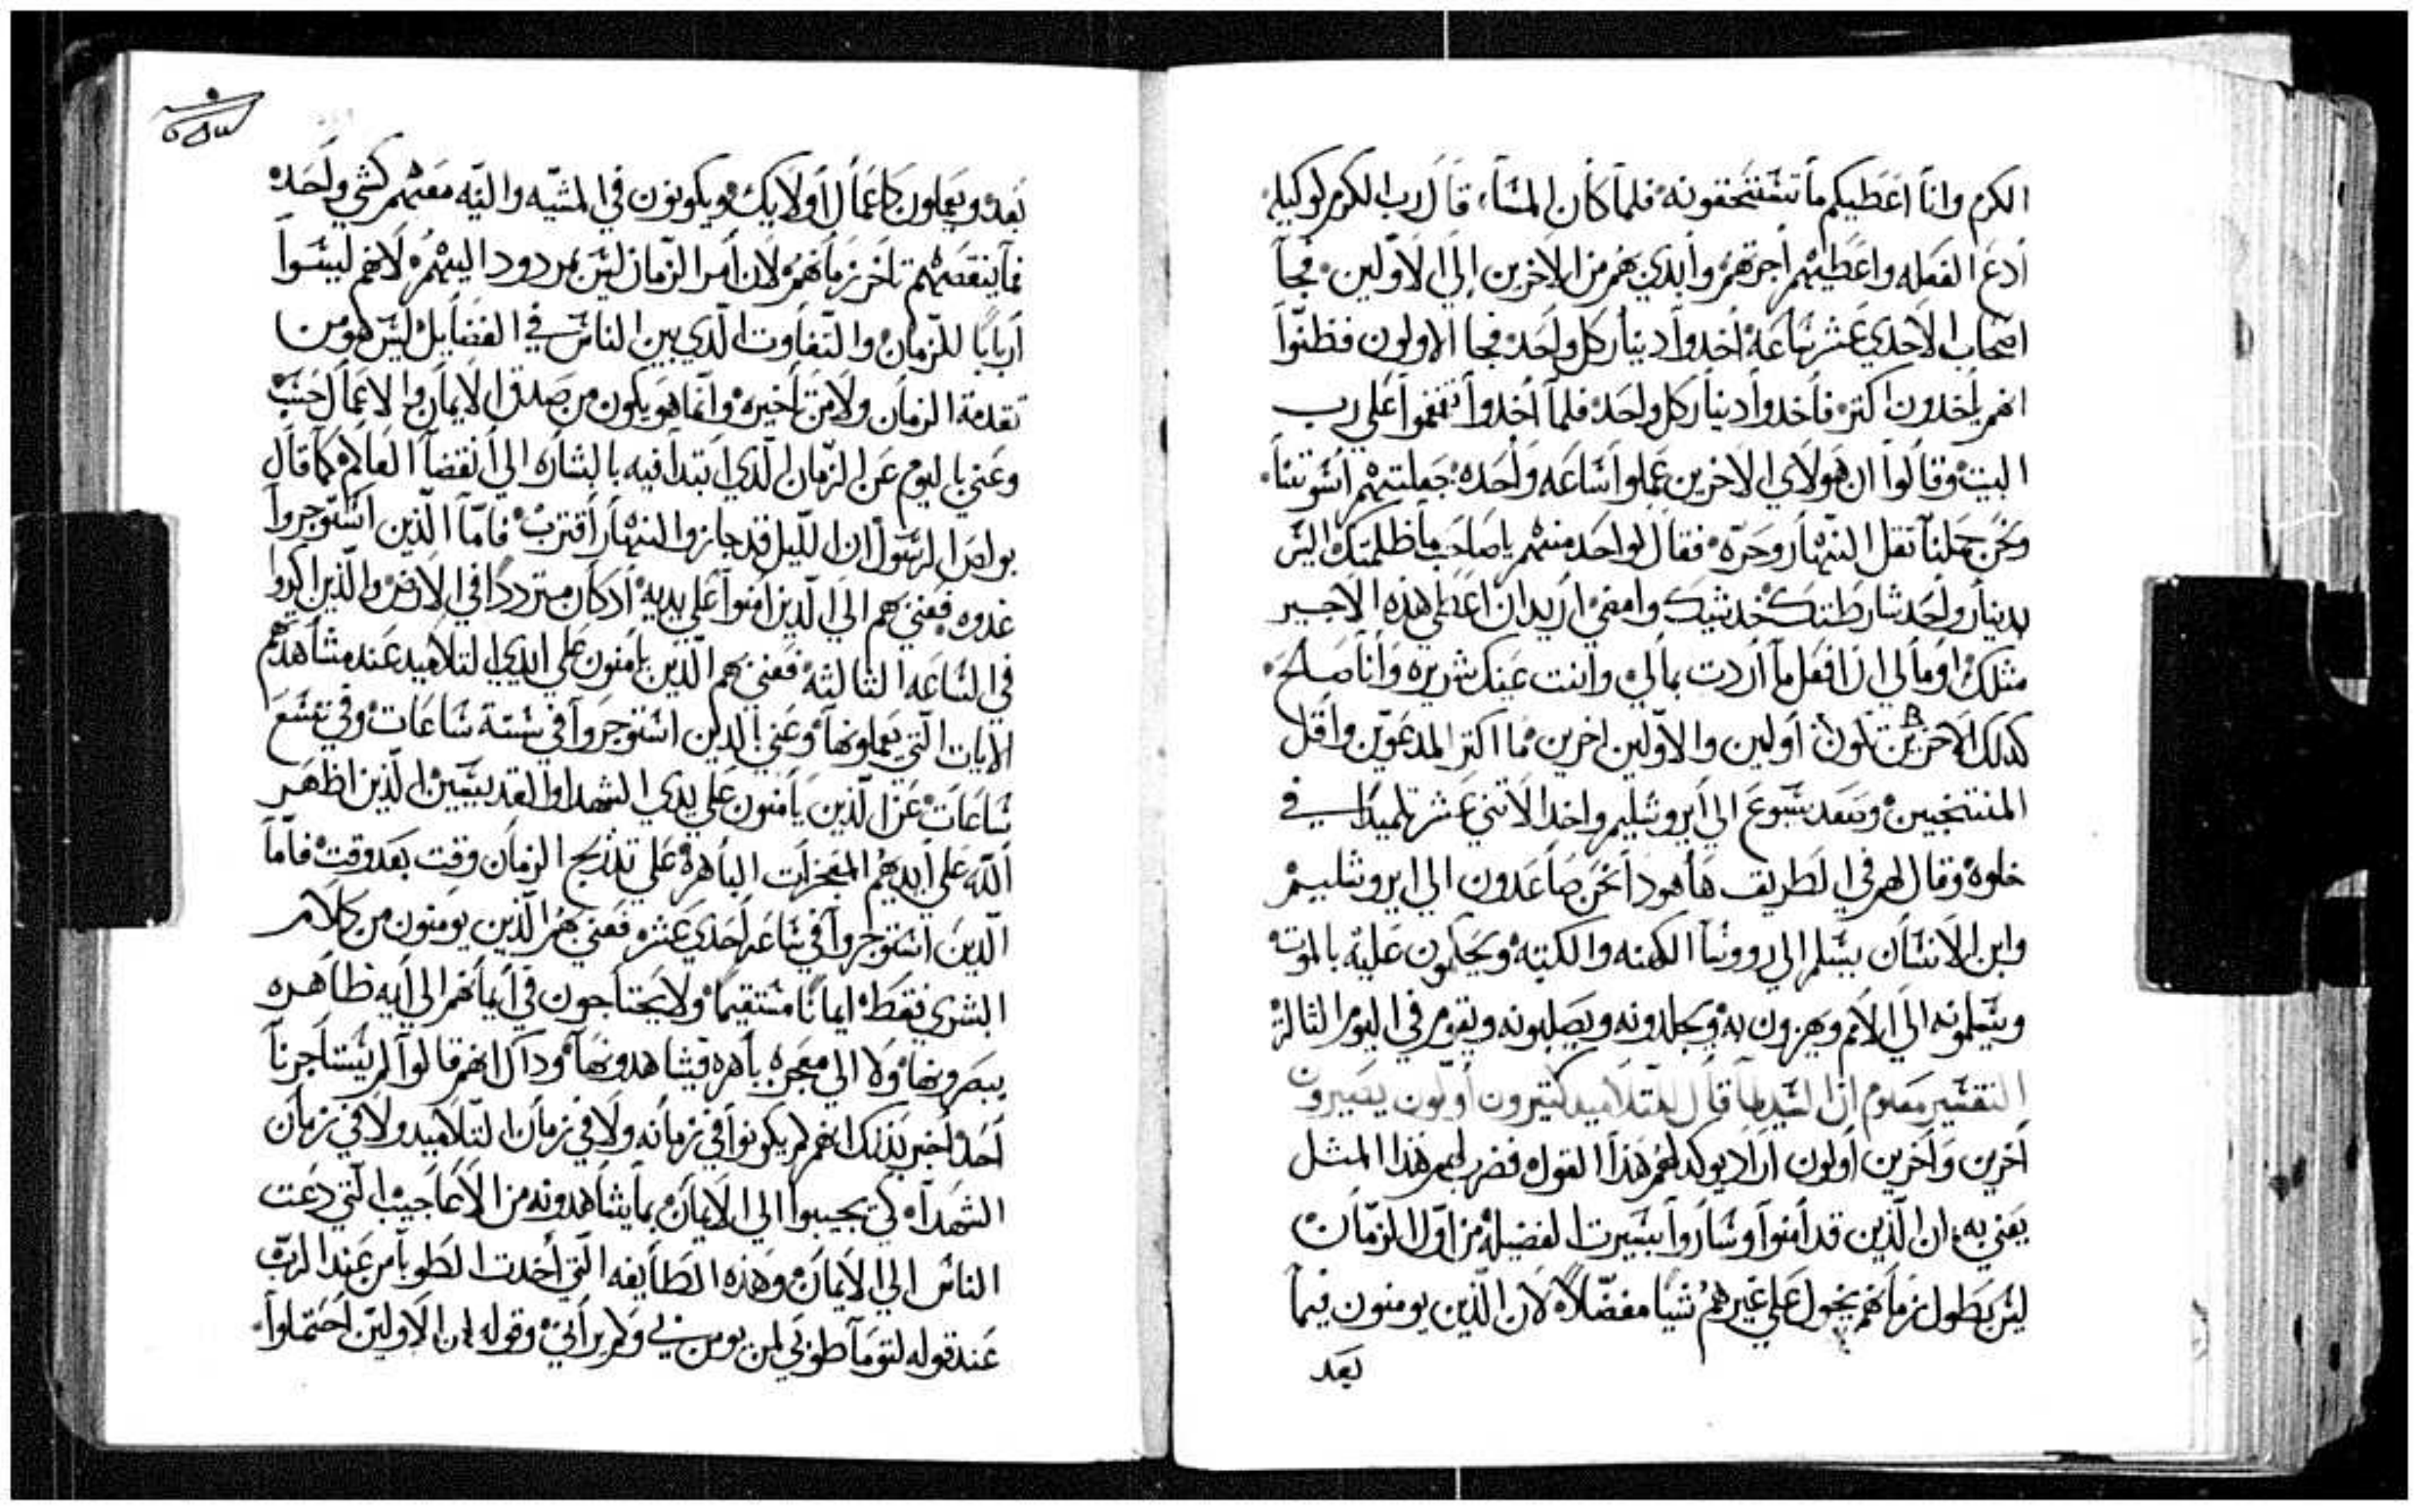 الكرم وانا اعطيكم ما تستحقونه فلما كان المساء قال رب الكرم لوكيله
أدع الفعله واعطيهم أجرتهم وأبدي بهم من الاخرين إلي الاولين فجآ
اصحاب الاحدي عشر ساعه أخدوا دينار كل واحد فجا الاولون فظنوا
انهم ياخدون اكتر فأخدوا دينار كل واحد فلما أخدوا تقمقموا علي رب
البيت وقالوا ان هولاي الاخرين عملوا ساعه واحده جعلتهم اسوتنا
ونحن حملنا تقل النهار وحره فقال لواحد منهم ياصاحب ما ظلمتك اليس
بدينار واحد شارطتك خد شيك وامضي اريد ان اعطي هذه الاجير
مثلك اوما لي ان افعل ما أردت بمالي وانت عينك شريره وانا صالح
كدلك الاخرين يكونون أولين والاولين اخرين فما اكتر المدعوين وأقل
المنتجبين وصعد يسوع الي أيروشليم واخد الاتني عشر تلميدا في
خلوه وقال لهم في الطريق ها هودا نحن صاعدون الي ايروشليم
وابن الانسان يسلم الي روسا الكهنه والكتبه ويحكمون عليه بالموت
ويسلمونه الي الامم ويهزون به ويجلدونه ويصلبونه ويقوم في اليوم الثالث
التفسير معلوم ان السيد لما قال للتلاميد كتيرون أولون يصيرون
أخرين وأخرين أولون اراد يوكد لهم هذا القول فضرب لهم هذا المثل
يعني به ان الذين قد أمنوا وساروا بسيرت الفضيله من اول الزمان
ليس بطول زمانهم يخول علي غيرهم شيا مفضلا لان الذين يومنون فيما
بعد
بعد ويعملون كاعمال أولايك ويكونون في المشيه والنيه معهم كشي واحد
فما ينقصهم تاخر زمانهم لان أمر الزمان ليس بمردود اليهم لانهم ليسوا
أربابا للزمان والتفاوت الدي بين الناس في الفضايل ليس هو من
تقدمة الزمان ولا من تاخيره وانما هو يكون من صدق الايمان والاعمال حسب
وعني باليوم عن الزمان الدي ابتدا فيه بالبشاره الي انقضا العالم كما قال
بولص الرسول ان الليل قد جاز والنهار أقترب فاما الذين استوجروا
غدوه فعني بهم الي الذين أمنوا علي يديه أد كان مترددا في الارض والذين اكروا
في الساعه الثالثه فعني بهم الذين يامنون علي ايدي التلاميد عند مشاهدتهم
الايات التي يعملونها وعني بالدين استوجروا في ستة ساعات وفي تسع
ساعات عن الذين يأمنون علي يدي الشهدا والقديسين الذين اظهر
الله علي أيديهم المعجزات الباهره علي تدريج الزمان وقت بعد وقت فأما
الدين استوجروا في ساعه احدي عشره فعني بهم الذين يومنون من كلام
البشري فقط ايمانا مستقيما ولا يحتاجون في أيمانهم الي أيه ظاهره
يبصرونها ولا الي معجزه باهره فيشاهدونها ودا ك انهم قالوا لم يستاجرنا
أحد أخبر بذلك انهم لم يكونوا في زمانه ولا في زمان التلاميد ولا في زمان
الشهدآ كي يجيبوا الي الايمان بما يشاهدونه من الاعاجيب التي دعت
الناس الي الايمان وهذه الطايفه التي أخدت الطوبا من عند الرب
عند قوله لتوما طوبي لمن يومن بي ولم يراني وقوله ان الاولين احتملوا